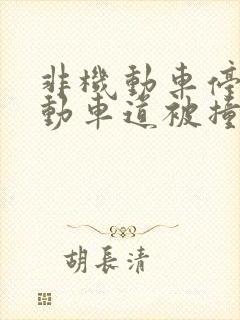 非機動車停
動車道被撞
胡長清